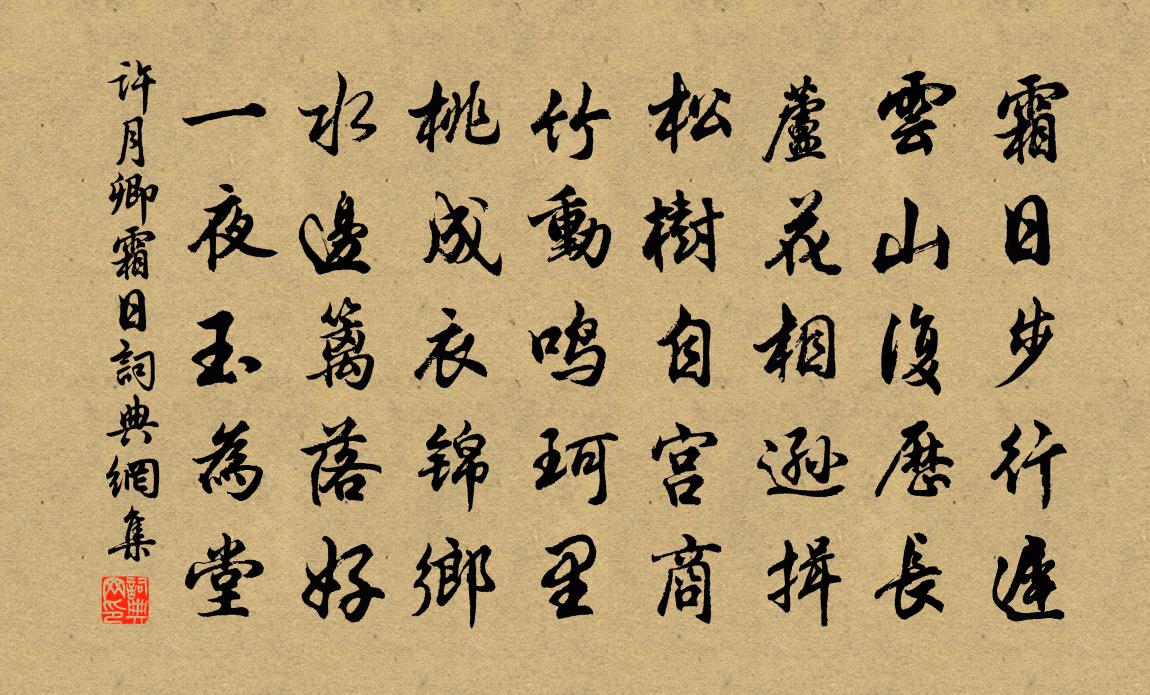 霜日步行遲
雲山復歷長
蘆花相遜揖
松樹自宮商
竹動鳴珂里
桃成衣錦鄉
水邊籬落好
一夜玉為堂
許月卿霜日詞典網集
詞典网印